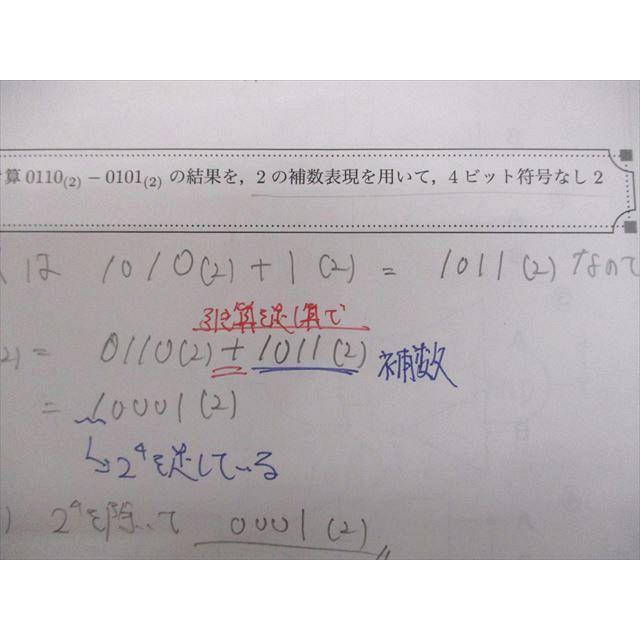 算 0110(2) − 0101(2) の結果を，2 の補数表現を用いて，4 ビット符号なし 2
は 1010(2) + 1(2) = 1011(2) なので
引き算を足し算で
(2) = 0110(2) + 1011(2) 補数
= 10001(2)
↳ 2⁴を足している
) 2⁴を除いて 0001(2)